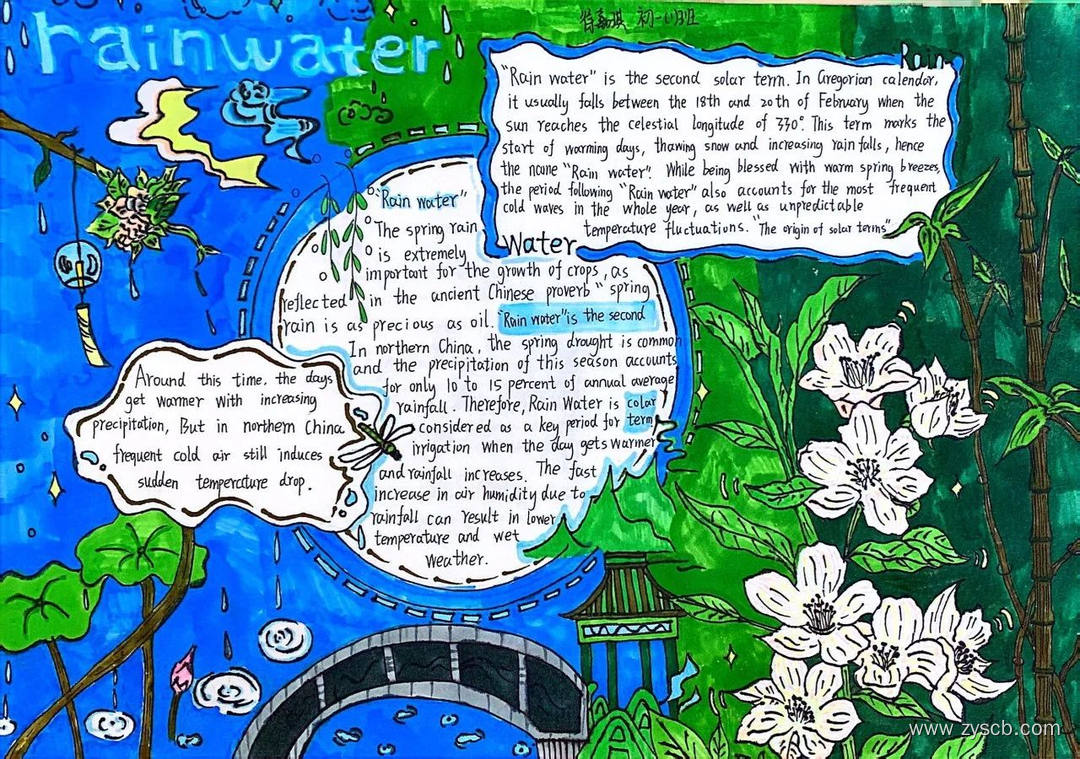 rainwater
初一(1)班
Rain
"Rain water" is the second solar term. In Gregorian calendar,
it usually falls between the 18th and 20th of February when the
sun reaches the celestial longitude of 330°. This term marks the
start of warming days, thawing snow and increasing rainfalls, hence
the name "Rain water". While being blessed with warm spring breezes,
the period following "Rain water" also accounts for the most frequent
cold waves in the whole year, as well as unpredictable
temperature fluctuations. "The origin of solar terms"
Water
"Rain water"
The spring rain
is extremely
important for the growth of crops, as
reflected in the ancient Chinese proverb "spring
rain is as precious as oil. "Rain water" is the second
In northern China, the spring drought is common
and the precipitation of this season accounts
for only 10 to 15 percent of annual average
rainfall. Therefore, Rain Water is colar
considered as a key period for term
irrigation when the day gets warmer
and rainfall increases. The fast
increase in air humidity due to
rainfall can result in lower
temperature and wet
weather.
Around this time, the days
get warmer with increasing
precipitation, But in northern China
frequent cold air still induces
sudden temperature drop.
www.zyscb.com